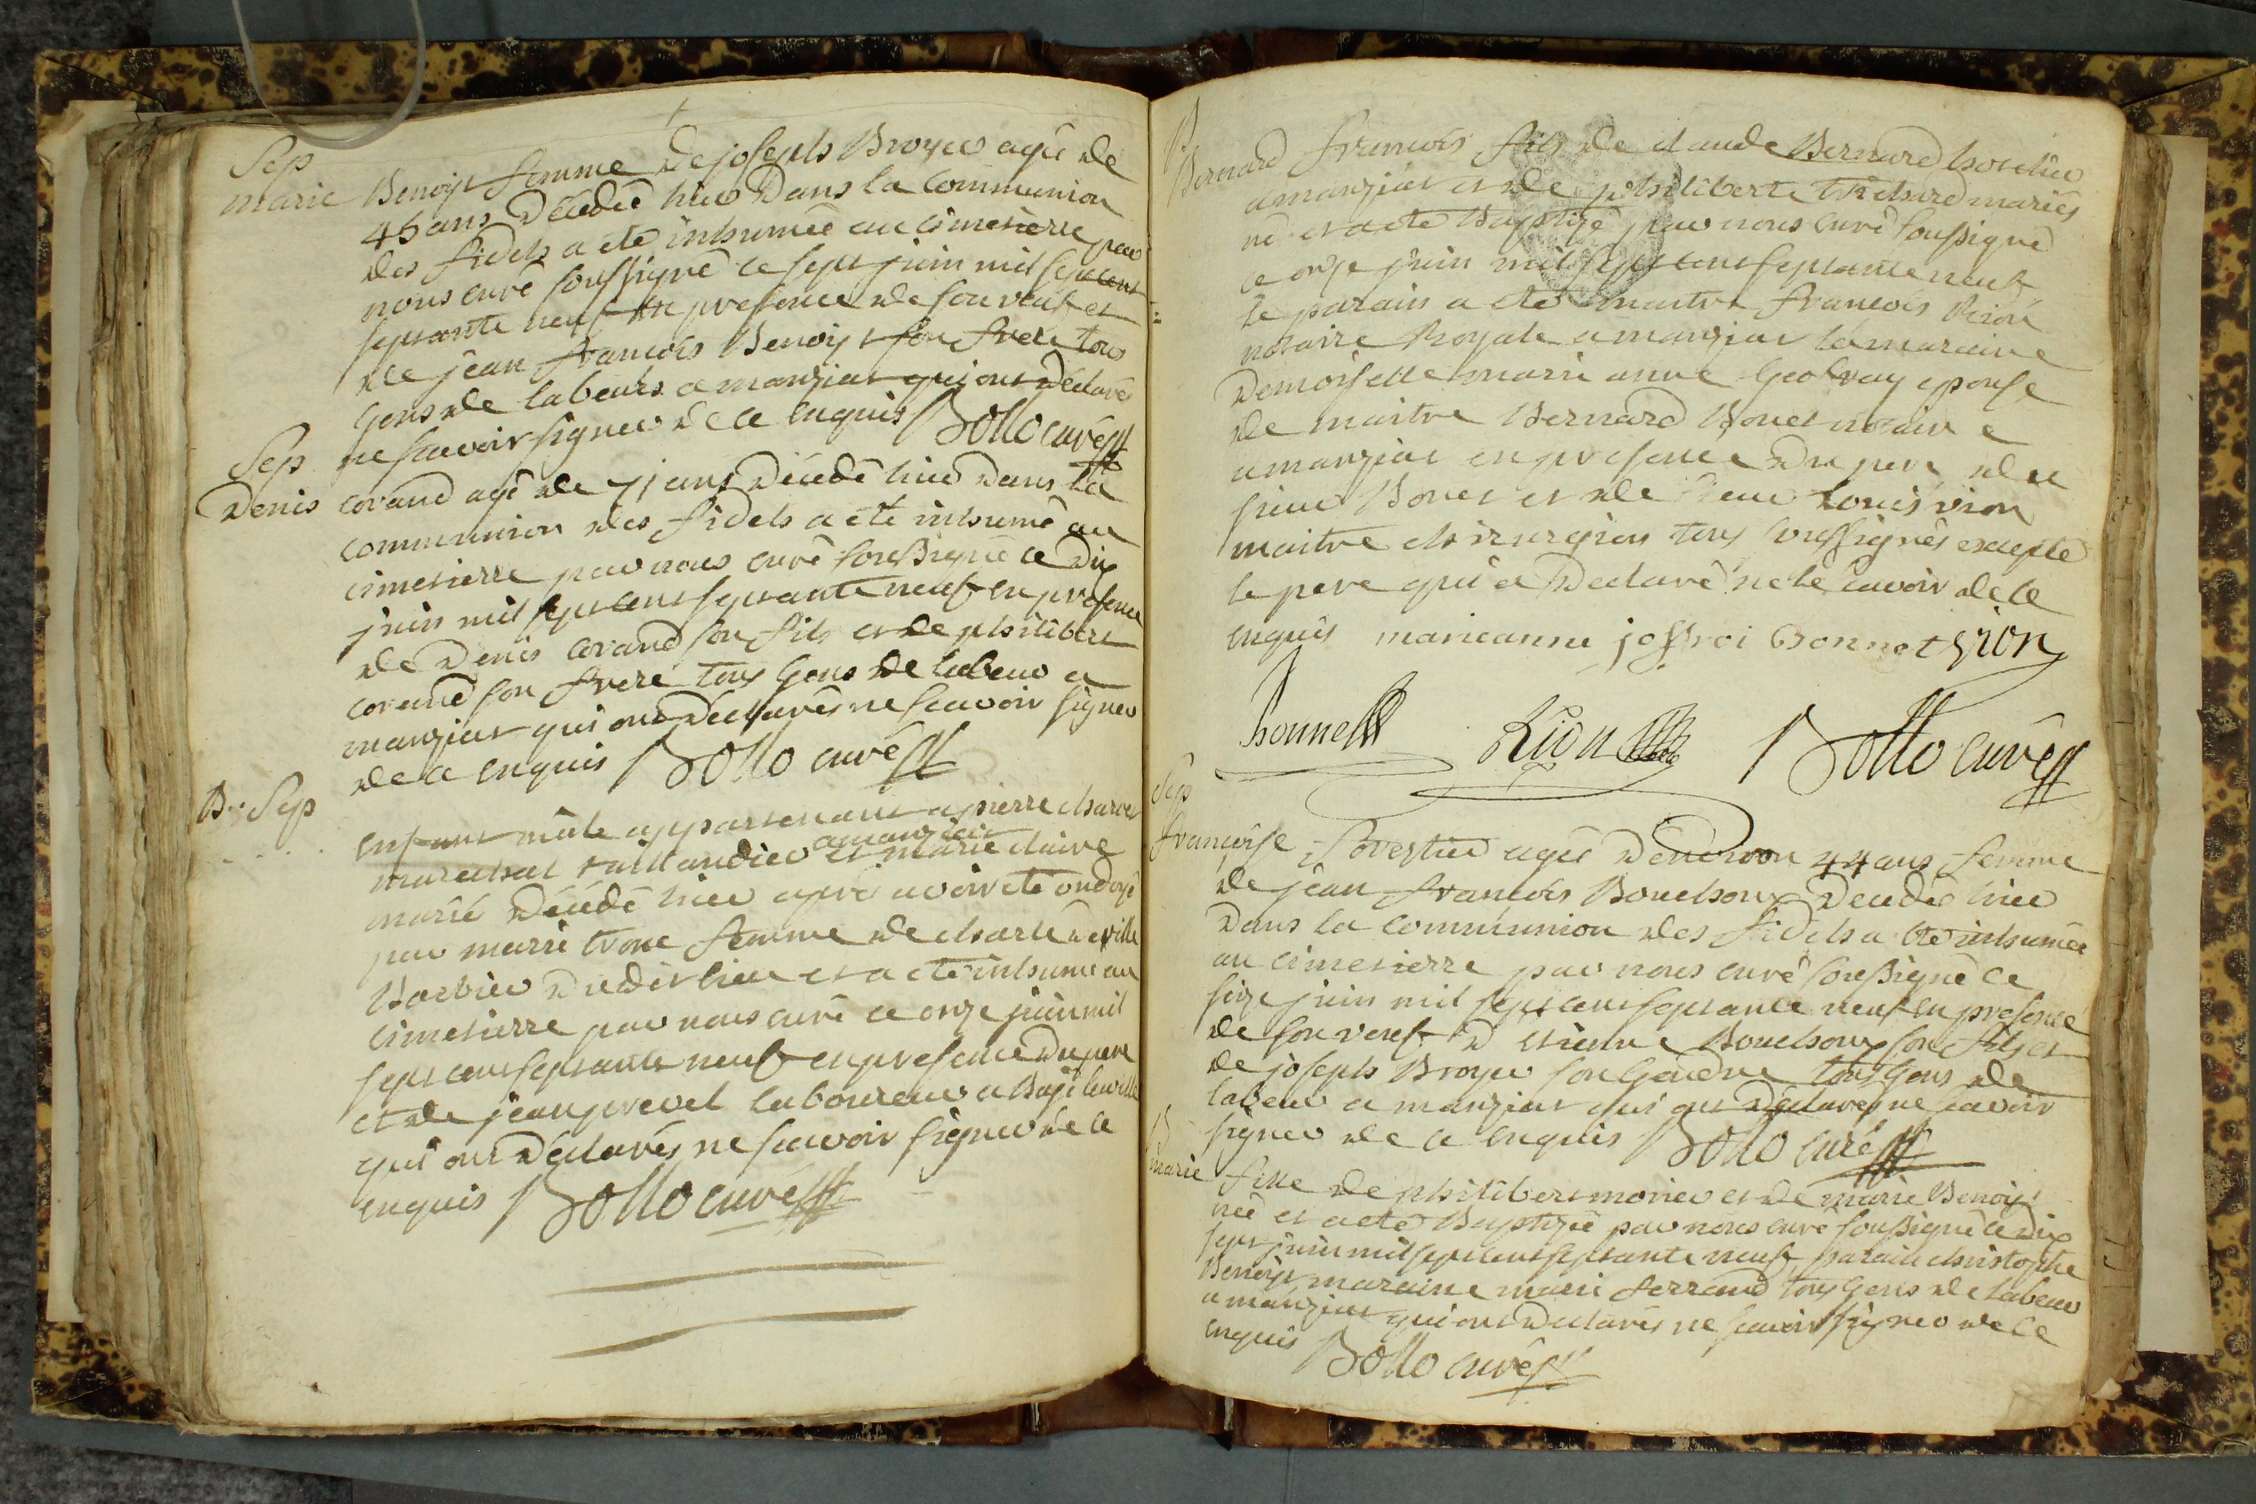 Sep
marie Benoist femme de joseph Broyer agée de
46 ans décédée hier dans la Communion
des fidels a eté inhumée au cimetierre par
nous curé soussigné ce sept juin mil sept cent
septante neuf en presence de son veuf et
de jean francois Benoist son frere tous
gens de labeurs a manziat qui ont déclaré
ne scavoir signer de ce enquis Bollo curé
Sep
Denis corand agé de 71 ans décédé hier dans la
communion des fidels a eté inhumé au
cimetierre par nous curé soussigné ce dix
juin mil sept cent septante neuf en presence
de Denis corand son fils et de philibert
corand son frere tous gens de labeur a
manziat qui ont déclarés ne scavoir signer
de ce enquis Bollo curé
B. Sep
enfant mâle appartenant a pierre
marechal taillandier a manziat et marie claire
marié décédé hier apré avoir eté ondoyé
par marie femme de charle
Barbier dudit lieu et a eté inhumé au
cimetierre par nous curé ce onze juin mil
sept cent septante neuf en presence du pere
et de jean prevel laboureur a Bagé la ville
qui ont déclarés ne scavoir signer de ce
enquis Bollo curé
B
Bernard francois fils de claude Bernard
a manziat et de philiberte mariés
né et a eté Baptizé par nous curé soussigné
ce onze juin mil sept cent septante neuf
le parain a eté maitre francois
notaire Royale a manziat la maraine
Demoiselle marie anne epouse
de maitre Bernard Bonet notaire
a manziat en presence du pere de
sieur Bonet et de sieur Louis vion
maitre chirurgien tous soussignés excepté
le pere qui a declaré ne le scavoir de ce
enquis marieanne joffroi Bonnet vion
Bonnet Rion Bollo curé
Sep
francoise Forestier agée d'environ 44 ans femme
de jean francois Bouchoux décédée hier
Dans la communion des fidels a eté inhumée
au cimetierre par nous curé soussigné ce
seize juin mil sept cent septante neuf en presence
de son veuf d'etienne Bouchoux son fils et
de joseph Broyer son Gendre tous gens de
labeur a manziat qui ont declarés ne scavoir
signer de ce enquis Bollo curé
B
marie fille de philibert et de marie Benoist
née et a eté Baptizée par nous curé soussigné ce dix
sept juin mil sept cent septante neuf parain christophe
Benoist maraine marie ferrand tous gens de labeur
a manziat qui ont declarés ne scavoir signer de ce
enquis Bollo curé